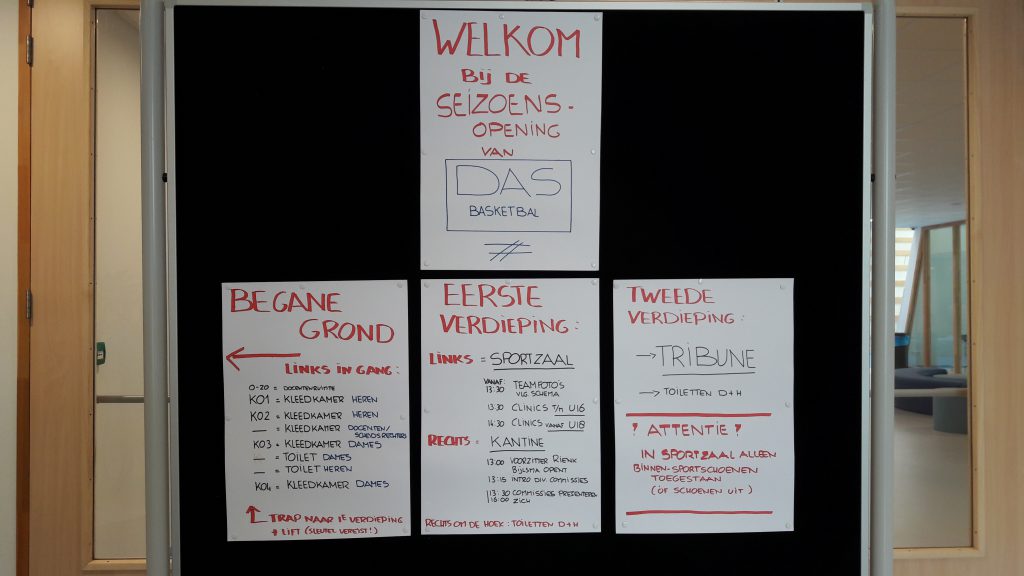 WELKOM
BIJ DE
SEIZOENS-
OPENING
VAN
DAS
BASKETBAL
BEGANE
GROND
LINKS IN GANG:
0-20 = DOCENTENRUIMTE
K01 = KLEEDKAMER HEREN
K02 = KLEEDKAMER HEREN
— = KLEEDKAMER DOCENTEN/
SCHEIDSRECHTERS
K03 = KLEEDKAMER DAMES
— = TOILET DAMES
— = TOILET HEREN
K04 = KLEEDKAMER DAMES
TRAP NAAR 1E VERDIEPING
+ LIFT (SLEUTEL VEREIST!)
EERSTE
VERDIEPING:
LINKS = SPORTZAAL
VANAF:
13:30 TEAMFOTO'S
VLG. SCHEMA
13:30 CLINICS T/M U16
14:30 CLINICS VANAF U18
RECHTS = KANTINE
13:00 VOORZITTER RIENK
BIJLSMA OPENT
13:15 INTRO DIV. COMMISSIES
13:30 COMMISSIES PRESENTEREN
16:00 ZICH
RECHTS OM DE HOEK: TOILETTEN D+H
TWEEDE
VERDIEPING:
→ TRIBUNE
→ TOILETTEN D+H
! ATTENTIE !
IN SPORTZAAL ALLEEN
BINNEN-SPORTSCHOENEN
TOEGESTAAN
(OF SCHOENEN UIT)